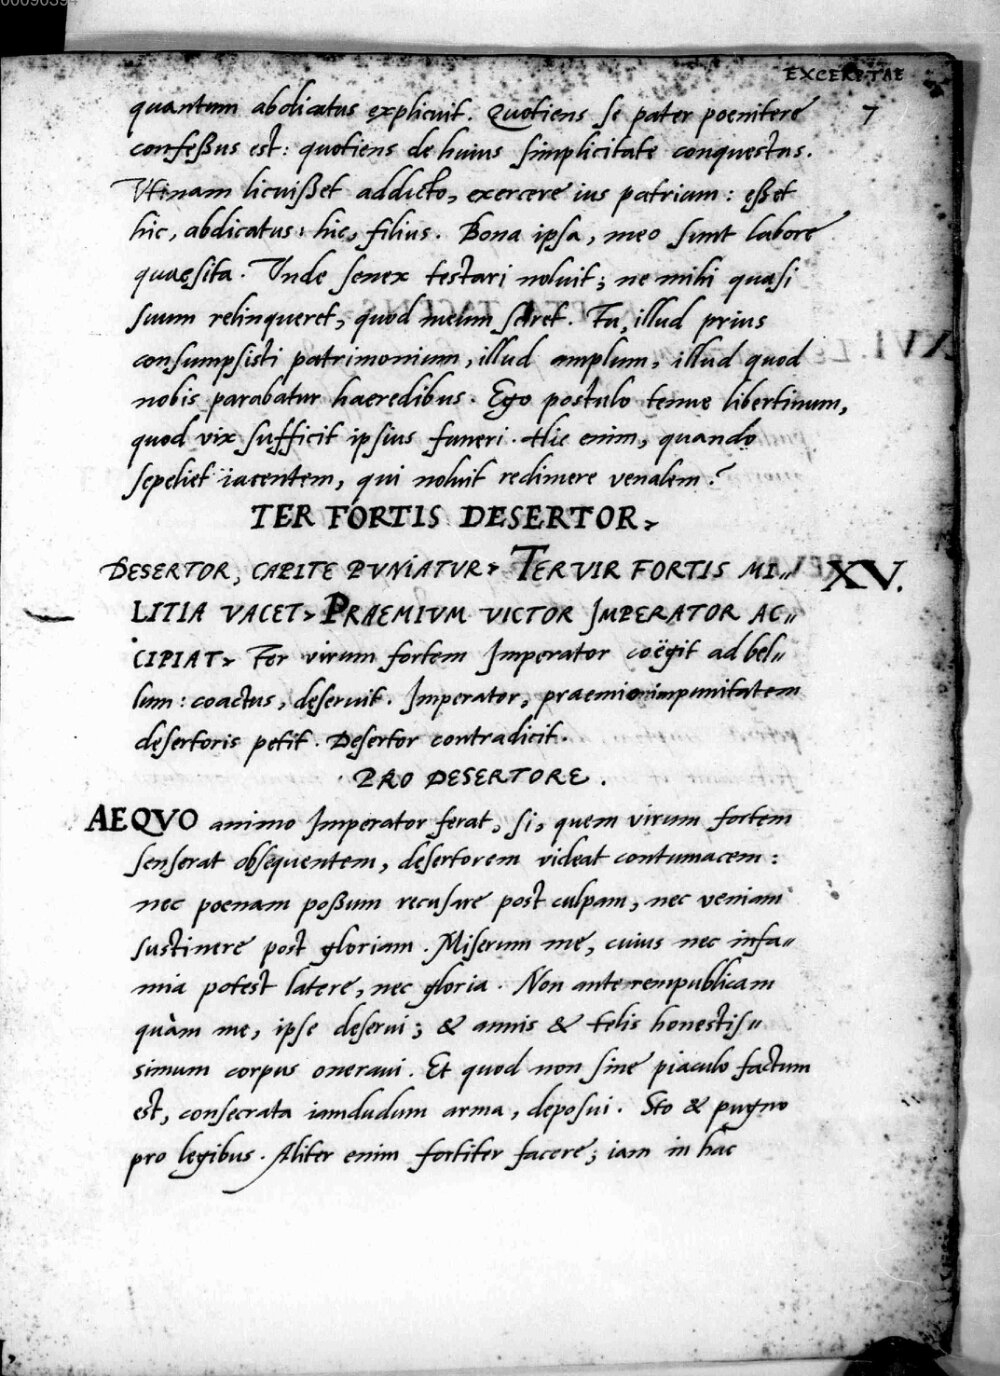 00096394
EXCERPTAE
7
quantum abdicatus explicuit. Quotiens se pater poenitere
confeßus est: quotiens de huius simplicitate conquestus.
Utinam licuißet addicto, exercere ius patrium: eßet
hic, abdicatus: hic, filius. Bona ipsa, meo sunt labore
quaesita. Unde senex testari noluit; ne mihi quasi
suum relinqueret, quod meum sciret. Tu, illud prius
consumpsisti patrimonium, illud amplum, illud quod
nobis parabatur haeredibus. Ego postulo tenue libertinum,
quod vix sufficit ipsius funeri. Hic enim, quando
sepeliet iacentem, qui noluit redimere venalem?
TER FORTIS DESERTOR.
DESERTOR, CAPITE PUNIATUR. TER VIR FORTIS MI„ XV.
LITIA VACET. PRAEMIVM VICTOR IMPERATOR AC„
CIPIAT. Ter virum fortem Imperator coëgit ad bel„
lum: coactus, deseruit. Imperator, praemio impunitatem
desertoris petit. Desertor contradicit.
PRO DESERTORE.
AEQVO animo Imperator ferat, si, quem virum fortem
senserat obsequentem, desertorem videat contumacem:
nec poenam poßum recusare post culpam, nec veniam
sustinere post gloriam. Miserum me, cuius nec infa„
mia potest latere, nec gloria. Non ante rempublicam
quàm me, ipse deserui; & annis & telis honestis„
simum corpus oneraui. Et quod non sine piaculo factum
est, consecrata iamdudum arma, deposui. Sto & pugno
pro legibus. Aliter enim fortiter facere; iam in hac